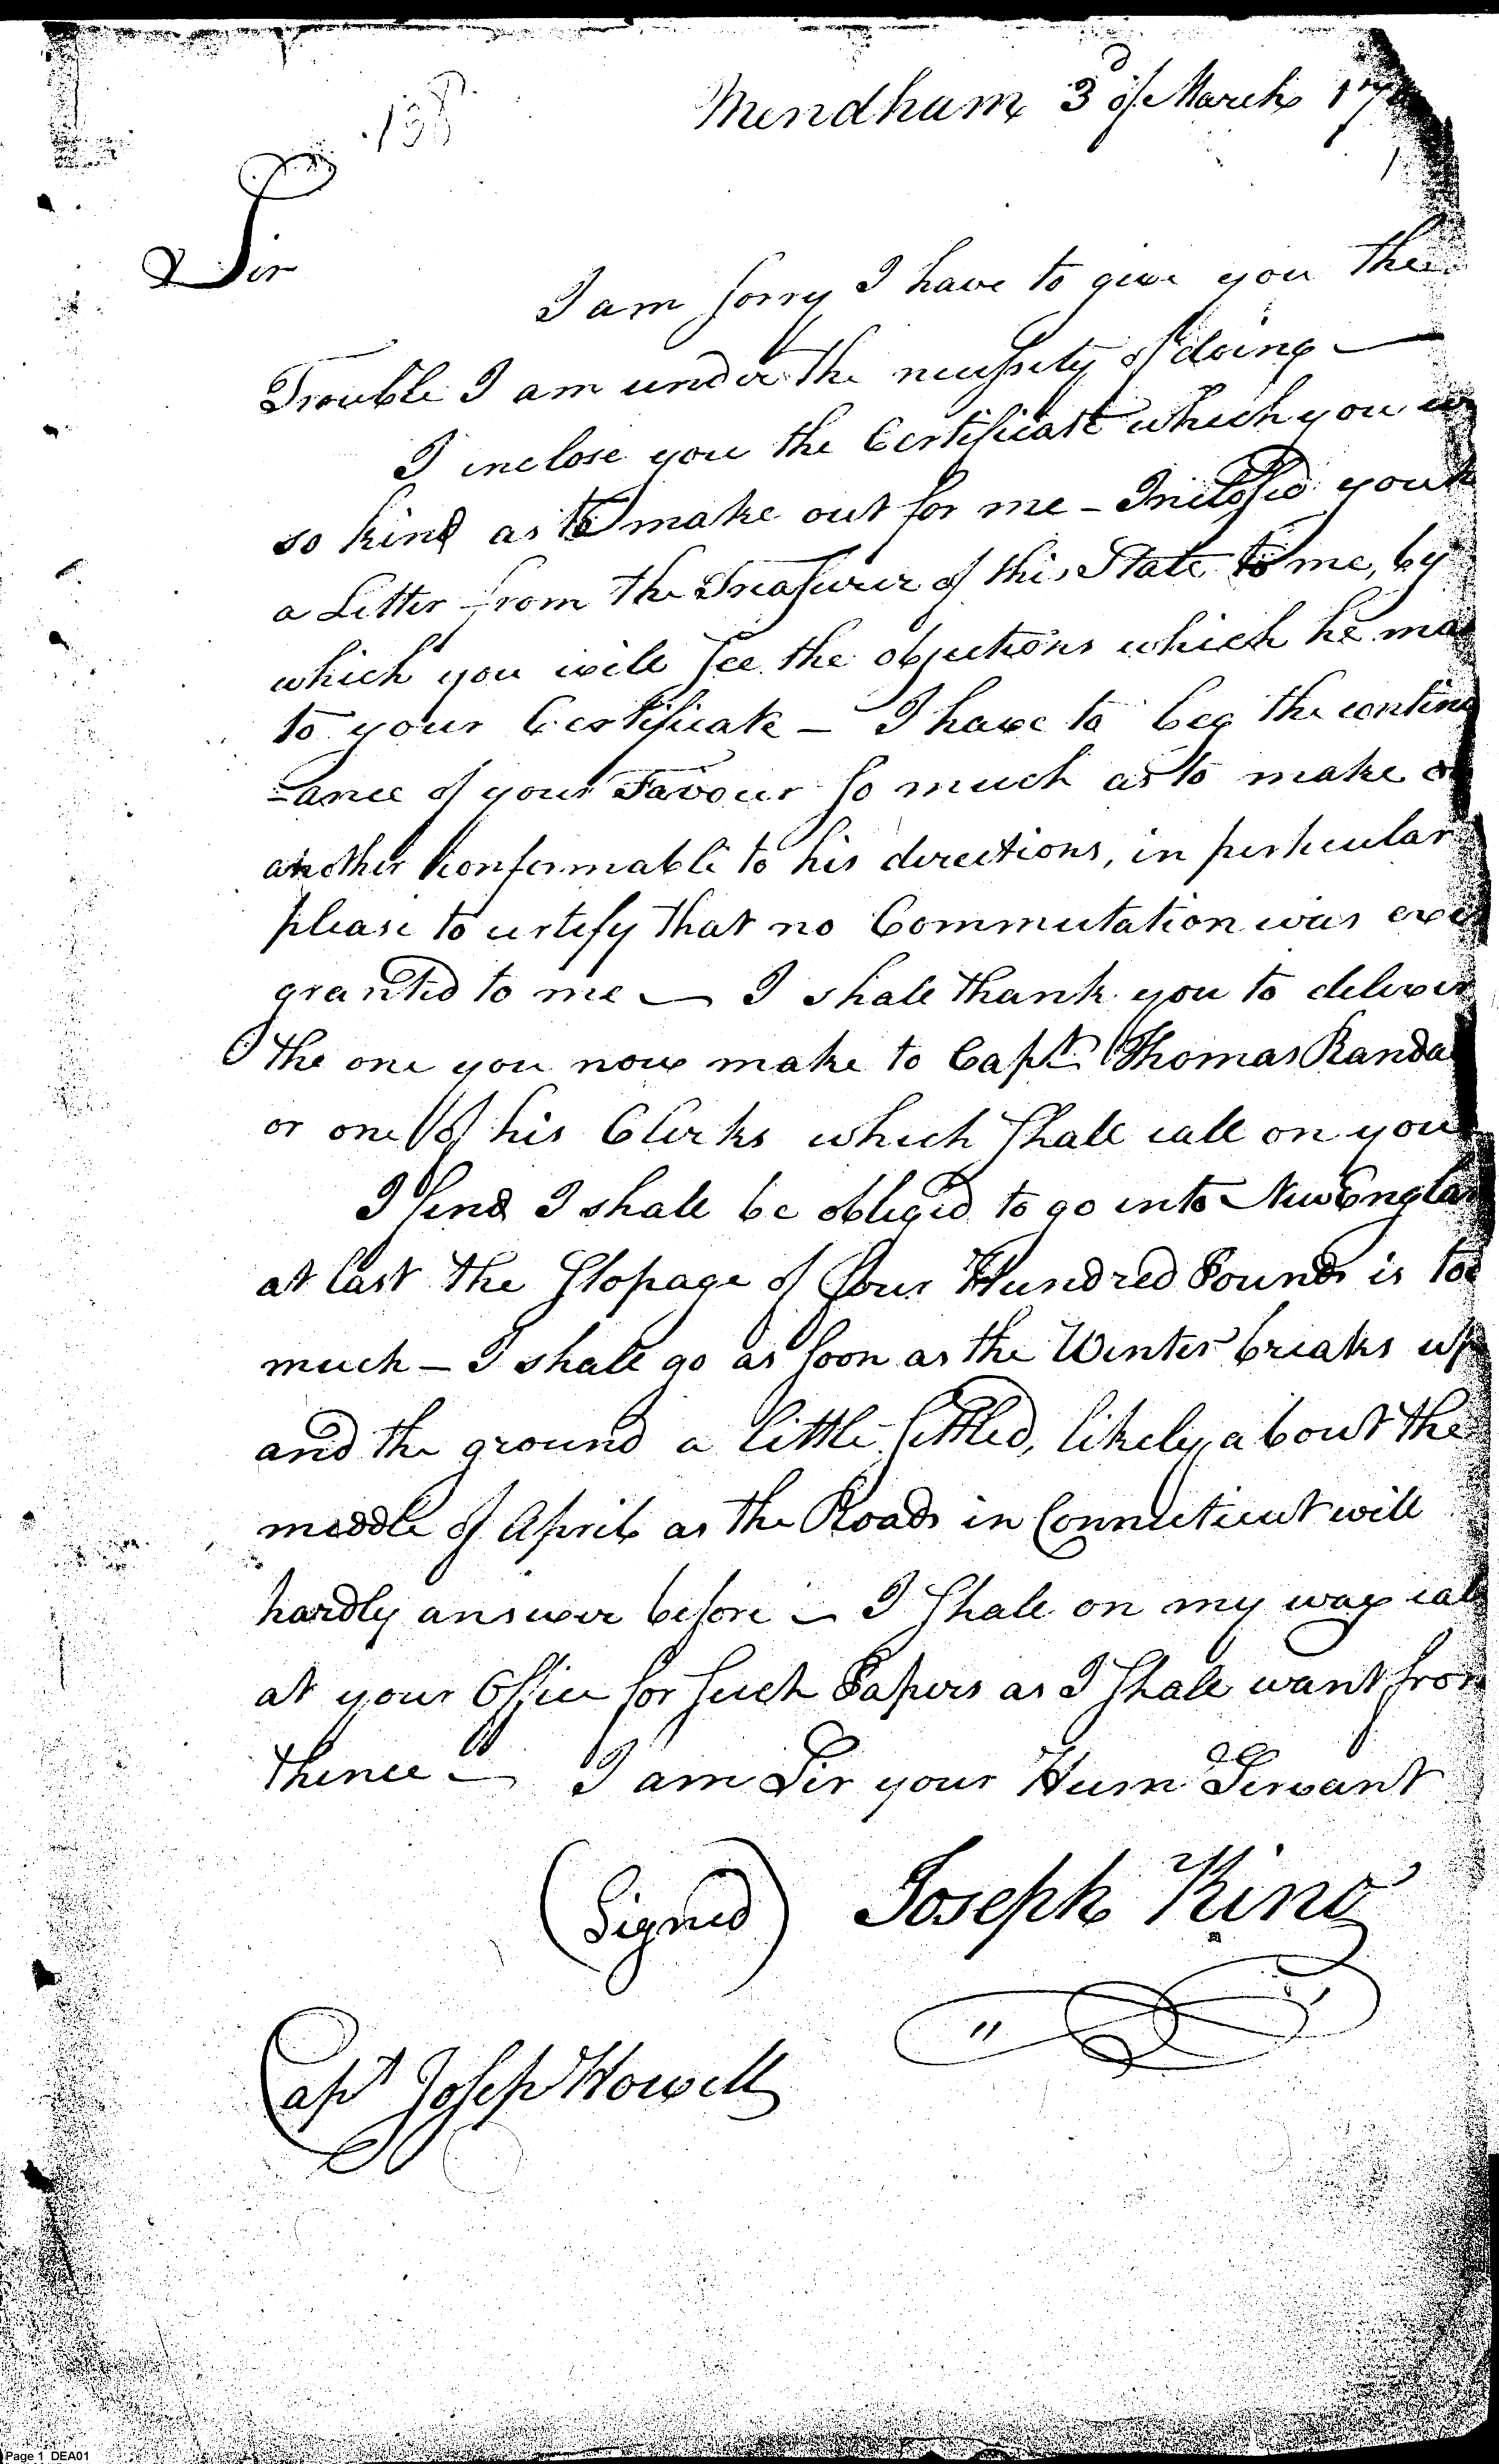 Mendham 3d of March 17
138
Sir
I am sorry I have to give you the
Trouble I am under the necessity of doing —
I inclose you the Certificate which you
so kind as to make out for me – Inclosed you
a Letter from the Treasurer of this State to me, by
which you will see the objections which he ma
to your Certificate – I have to beg the continu
-ance of your Favour so much as to make
another conformable to his directions, in perticular
please to certify that no Commutation was ever
granted to me — I shall thank you to deliver
the one you now make to Capt. Thomas Randa
or one of his Clerks which shall call on you
I find I shall be obliged to go into New Englan
at last the stopage of four Hundred Pounds is too
much – I shall go as soon as the Winter breaks up
and the ground a little settled, likely about the
middle of April as the Roads in Connecticut will
hardly answer before – I shall on my way call
at your Office for such Papers as I shall want from
thence – I am Sir your Hume Servant
(Signed) Joseph King
Capt Joseph Howell
Page 1 DEA01